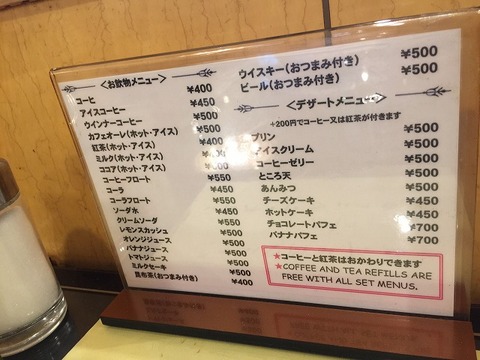 <お飲物メニュー>
コーヒ ¥400
アイスコーヒー ¥450
ウインナーコーヒー ¥500
カフェオーレ(ホット・アイス) ¥500
紅茶(ホット・アイス)
ミルク(ホット・アイス)
ココア(ホット・アイス)
コーヒーフロート ¥550
コーラ ¥450
コーラフロート ¥550
ソーダ水 ¥450
クリームソーダ ¥550
レモンスカッシュ ¥500
オレンジジュース ¥500
バナナジュース ¥500
トマトジュース ¥500
ミルクセーキ ¥500
昆布茶(おつまみ付き) ¥400
ウイスキー(おつまみ付き) ¥500
ビール(おつまみ付き) ¥500
<デザートメニュー>
+200円でコーヒー又は紅茶が付きます
プリン ¥500
アイスクリーム ¥500
コーヒーゼリー ¥500
ところ天 ¥500
あんみつ ¥500
チーズケーキ ¥450
ホットケーキ ¥450
チョコレートパフェ ¥700
バナナパフェ ¥700
★コーヒーと紅茶はおかわりできます
★COFFEE AND TEA REFILLS ARE
FREE WITH ALL SET MENUS.